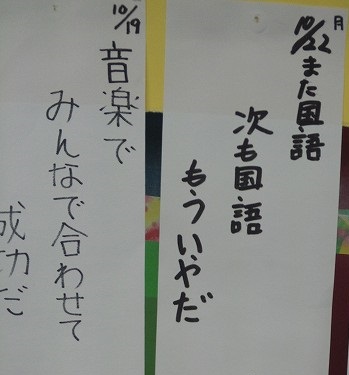 10/22 月
また国語
次も国語
もういやだ
10/19
音楽で
みんなで合わせて
成功だ